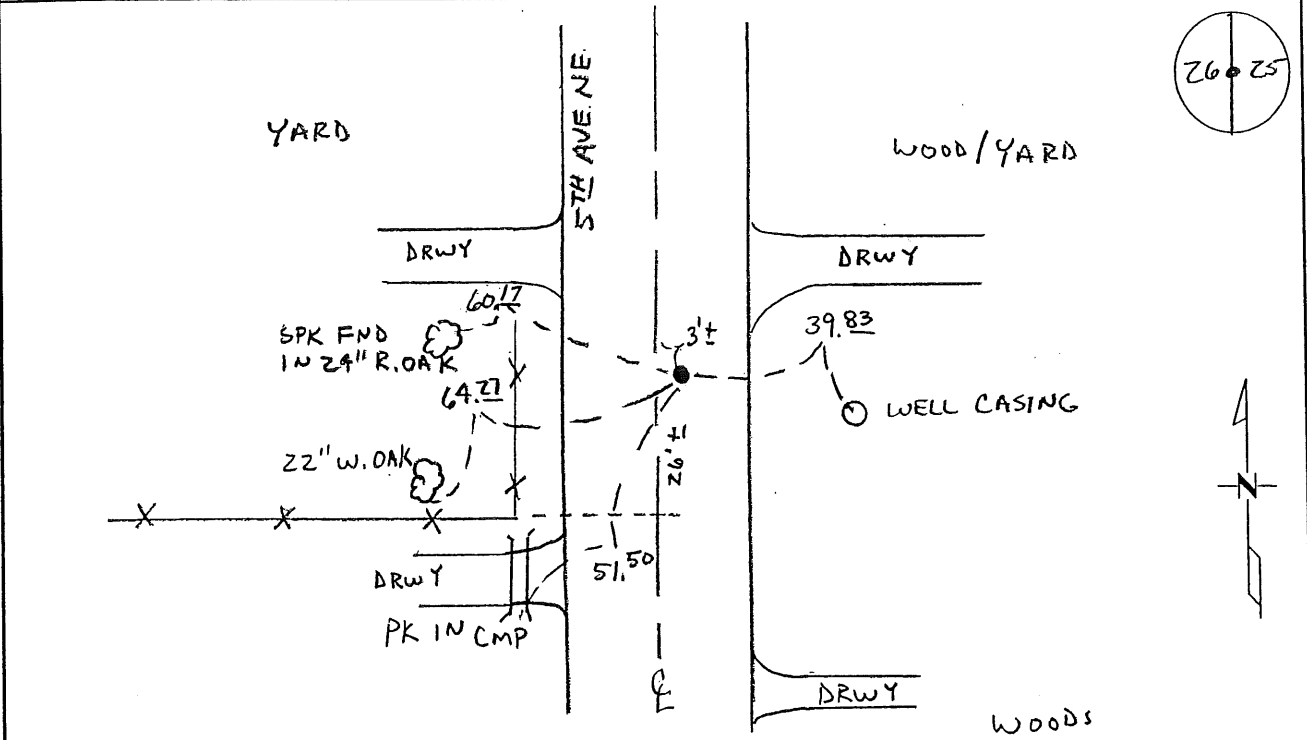 26 25
YARD
5TH AVE. NE.
WOOD/YARD
DRWY
DRWY
60.17
SPK FND
IN 24" R. OAK
3'±
39.83
64.27
WELL CASING
22" W. OAK
26'±
N
51.50
DRWY
PK IN CMP
℄
DRWY
WOODS